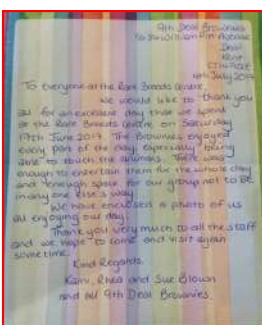 9th Deal Brownies
Avenue
Deal
Kent
4th July 2017
To Everyone at the Rare Breeds Centre,
We would like to thank you
all for an excellent day that we spent
at the Rare Breeds Centre, on Saturday
17th June 2017. The Brownies enjoyed
every part of the day, especially being
able to touch the animals. There was
enough to entertain them for the whole day
and enough space for our group not to be
in any one else's way.
We have enclosed a photo of us
all enjoying our day.
Thank you very much to all the staff
and we hope to come and visit again
sometime.
Kind Regards,
Rhea and Sue Blown
and all 9th Deal Brownies.